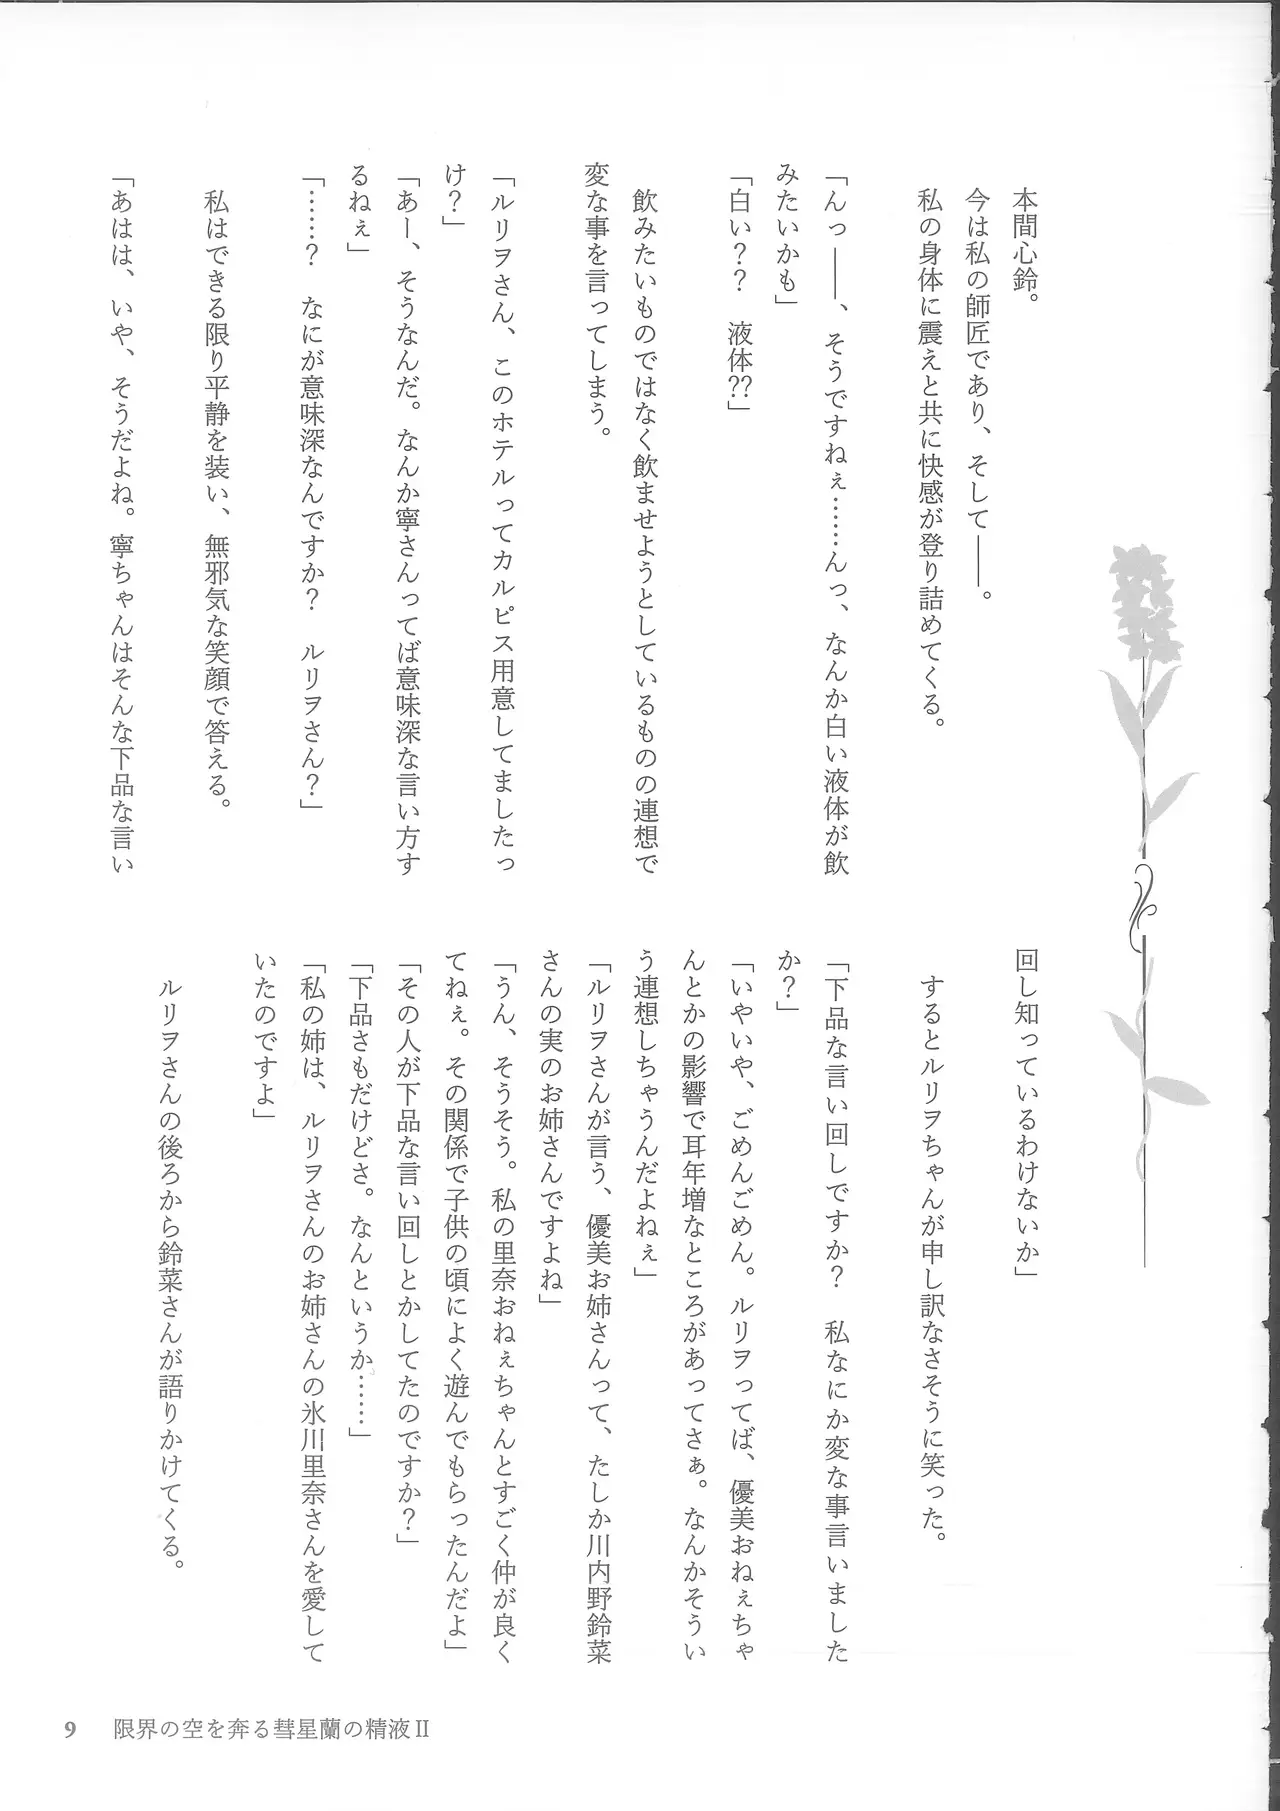 本間心鈴。
今は私の師匠であり、そして――。
私の身体に震えと共に快感が登り詰めてくる。
「んっ――、そうですねぇ……んっ、なんか白い液体が飲
みたいかも」
「白い？？　液体??」
飲みたいものではなく飲ませようとしているものの連想で
変な事を言ってしまう。
「ルリヲさん、このホテルってカルピス用意してましたっ
け？」
「あー、そうなんだ。なんか寧さんってば意味深な言い方す
るねぇ」
「……？　なにが意味深なんですか？　ルリヲさん？」
私はできる限り平静を装い、無邪気な笑顔で答える。
「あはは、いや、そうだよね。寧ちゃんはそんな下品な言い
回し知っているわけないか」
するとルリヲちゃんが申し訳なさそうに笑った。
「下品な言い回しですか？　私なにか変な事言いました
か？」
「いやいや、ごめんごめん。ルリヲってば、優美おねぇちゃ
んとかの影響で耳年増なところがあってさぁ。なんかそうい
う連想しちゃうんだよねぇ」
「ルリヲさんが言う、優美お姉さんって、たしか川内野鈴菜
さんの実のお姉さんですよね」
「うん、そうそう。私の里奈おねぇちゃんとすごく仲が良く
てねぇ。その関係で子供の頃によく遊んでもらったんだよ」
「その人が下品な言い回しとかしてたのですか？」
「下品さもだけどさ。なんというか……」
「私の姉は、ルリヲさんのお姉さんの氷川里奈さんを愛して
いたのですよ」
ルリヲさんの後ろから鈴菜さんが語りかけてくる。
9　限界の空を奔る彗星蘭の精液Ⅱ